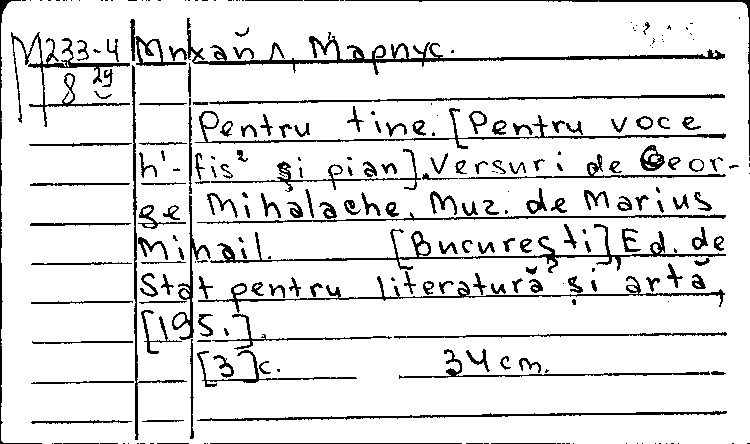 М233-4 Михайл, Мариус.
8 29
Pentru tine. [Pentru voce
h'-fis² și pian]. Versuri de Geor-
ge Mihalache. Muz. de Marius
Mihail. [București], Ed. de
Stat pentru literatură și artă,
[195.].
[3]c. 34 cm.